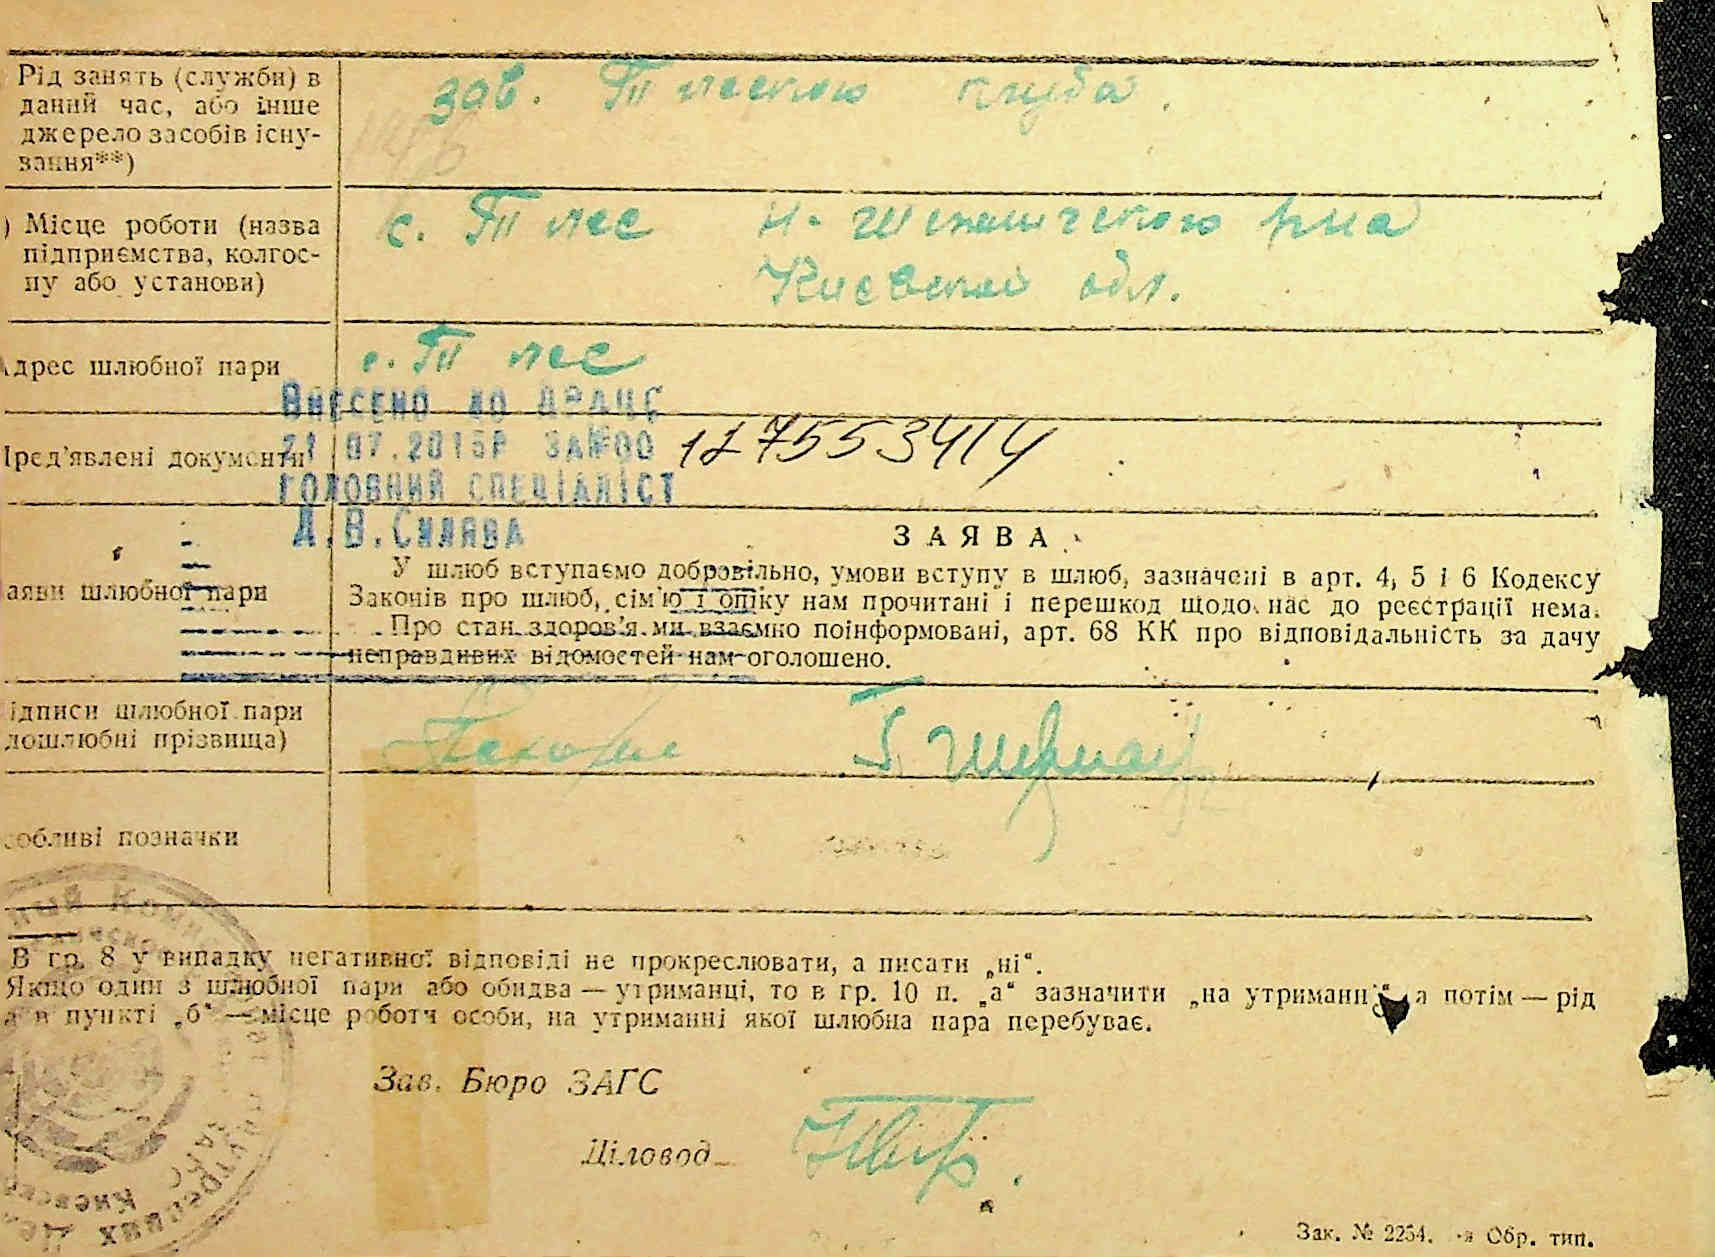 Рід занять (служби) в
даний час, або інше
джерело засобів існу-
вання**)
зав. клуба.
) Місце роботи (назва
підприємства, колгос-
пу або установи)
с.
Києвской обл.
дрес шлюбної пари
с.
Внесено до ДРАЦС
ред'явлені документи
21.07.2015р за№00 127553414
Головний спеціаліст
Д.В.Силява
ЗАЯВА
аяви шлюбної пари
У шлюб вступаємо добровільно, умови вступу в шлюб, зазначені в арт. 4, 5 і 6 Кодексу
Законів про шлюб, сім'ю і опіку нам прочитані і перешкод щодо нас до реєстрації нема.
Про стан здоров'я ми взаємно поінформовані, арт. 68 КК про відповідальність за дачу
неправдивих відомостей нам оголошено.
ідписи шлюбної пари
дошлюбні прізвища)
собливі позначки
В гр. 8 у випадку негативної відповіді не прокреслювати, а писати „ні“.
Якщо один з шлюбної пари або обидва — утриманці, то в гр. 10 п. „а“ зазначити „на утриманні“, а потім — рід
а в пункті „б“ — місце роботи особи, на утриманні якої шлюбна пара перебуває.
Зав. Бюро ЗАГС
Діловод
Зак. № 2254. Обр. тип.